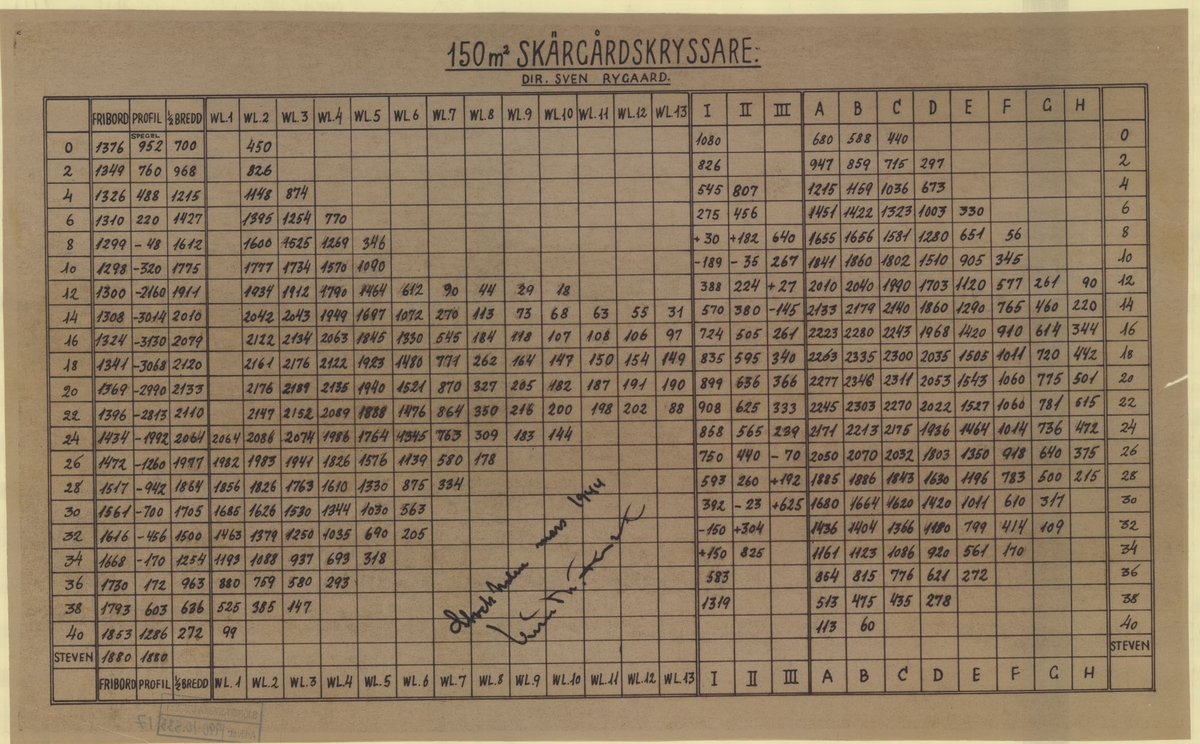 150m² SKÄRGÅRDSKRYSSARE:
DIR. SVEN RYGAARD.
FRIBORD PROFIL ½BREDD WL.1 WL.2 WL.3 WL.4 WL.5 WL.6 WL.7 WL.8 WL.9 WL.10 WL.11 WL.12 WL.13 I II III A B C D E F G H
SPEGEL
0 1376 952 700 450 1080 680 588 440 0
2 1349 760 968 826 826 947 859 715 297 2
4 1326 488 1215 1148 874 545 807 1215 1169 1036 673 4
6 1310 220 1427 1395 1254 770 275 456 1451 1422 1323 1003 330 6
8 1299 -48 1612 1600 1525 1269 346 +30 +182 640 1655 1656 1581 1280 651 56 8
10 1298 -320 1775 1777 1734 1570 1090 -189 -35 267 1841 1860 1802 1510 905 345 10
12 1300 -2160 1911 1934 1912 1790 1464 612 90 44 29 18 388 224 +27 2010 2040 1990 1703 1120 577 261 90 12
14 1308 -3014 2010 2042 2043 1949 1697 1072 270 113 73 68 63 55 31 570 380 -145 2133 2179 2140 1860 1290 765 460 220 14
16 1324 -3130 2079 2122 2134 2063 1845 1330 545 184 118 107 108 106 97 724 505 261 2223 2280 2243 1968 1420 910 614 344 16
18 1341 -3068 2120 2161 2176 2122 1923 1480 771 262 164 147 150 154 149 835 595 340 2263 2335 2300 2035 1505 1011 720 442 18
20 1369 -2990 2133 2176 2189 2135 1940 1521 870 327 205 182 187 191 190 899 636 366 2277 2346 2311 2053 1543 1060 775 501 20
22 1396 -2813 2110 2147 2152 2089 1888 1476 864 350 216 200 198 202 88 908 625 333 2245 2303 2270 2022 1527 1060 781 515 22
24 1434 -1992 2064 2064 2086 2074 1986 1764 1345 763 309 183 144 858 565 239 2171 2213 2175 1936 1464 1014 736 472 24
26 1472 -1260 1977 1982 1983 1941 1826 1576 1139 580 178 750 440 -70 2050 2070 2032 1803 1350 918 640 375 26
28 1517 -942 1864 1856 1826 1763 1610 1330 875 334 593 260 +192 1885 1886 1843 1630 1196 783 500 215 28
30 1561 -700 1705 1685 1626 1530 1344 1030 563 392 -23 +625 1680 1664 1620 1420 1011 610 317 30
32 1616 -456 1500 1463 1379 1250 1035 690 205 -150 +304 1436 1404 1366 1180 799 414 109 32
34 1668 -170 1254 1193 1088 937 693 318 +150 825 1161 1123 1086 920 561 170 34
36 1730 172 963 880 759 580 293 583 854 815 776 621 272 36
38 1793 603 636 525 385 147 1319 513 475 435 278 38
40 1853 1286 272 99 113 60 40
STEVEN 1880 1880 STEVEN
FRIBORD PROFIL ½BREDD WL.1 WL.2 WL.3 WL.4 WL.5 WL.6 WL.7 WL.8 WL.9 WL.10 WL.11 WL.12 WL.13 I II III A B C D E F G H
Stockholm mars 1944